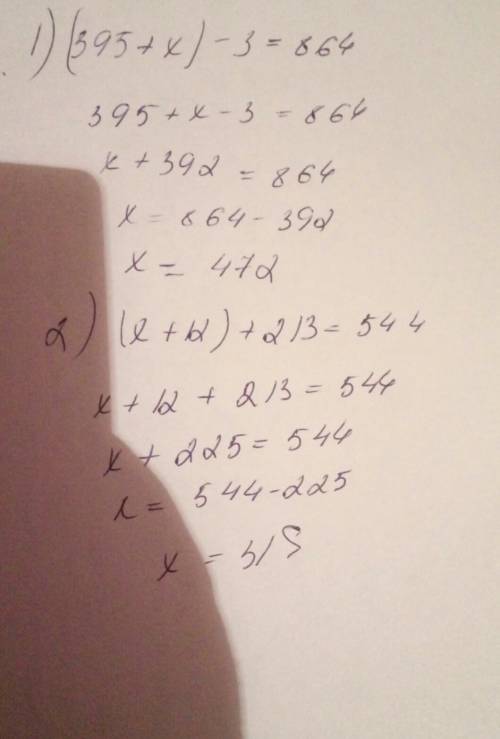 1) (395+x)-3=864
395+x-3=864
x+392=864
x=864-392
x=472
2) (x+12)+213=544
x+12+213=544
x+225=544
x=544-225
x=319